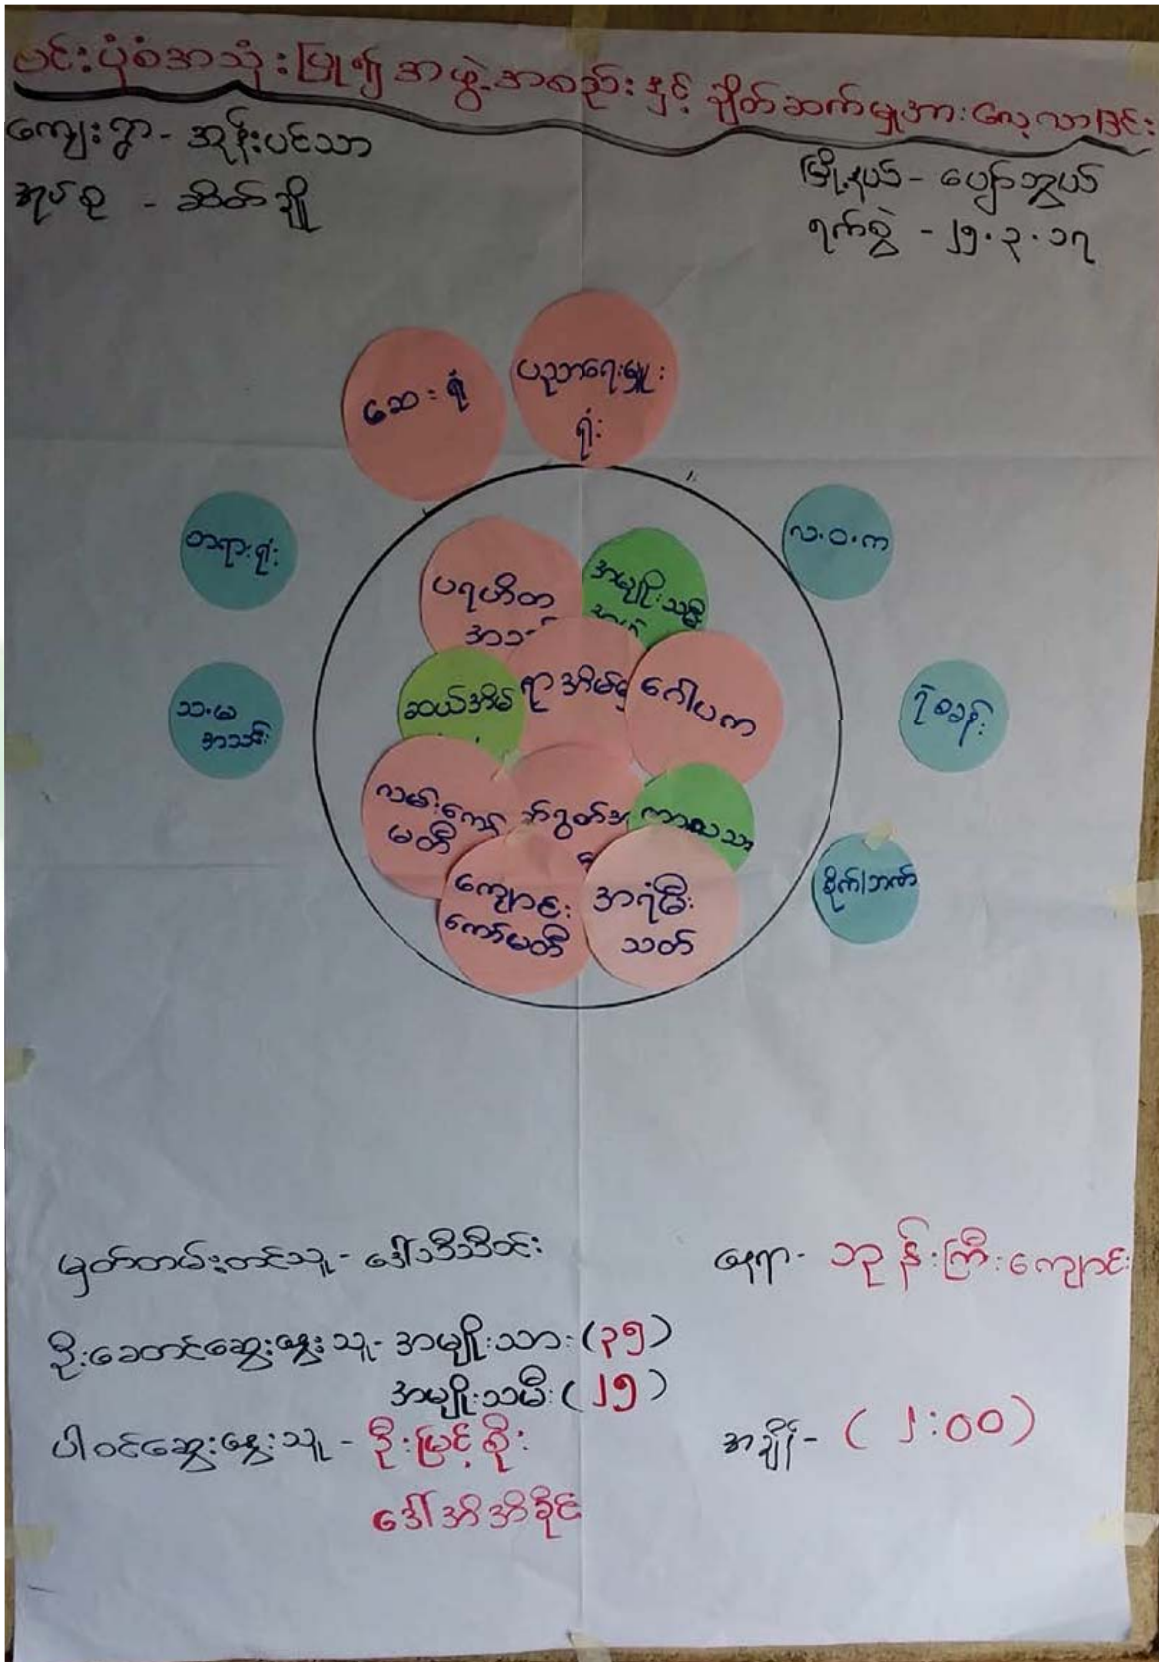 ဗင်းပုံစံအသုံးပြု၍ အဖွဲ့အစည်းနှင့် ချိတ်ဆက်မှုအားလေ့လာခြင်း
ကျေးရွာ - အုန်းပင်သာ
အုပ်စု - ဆိတ်ချို
မြို့နယ် - ပျော်ဘွယ်
ရက်စွဲ - ၂၅.၃.၁၇
ဆေးရုံ
ပညာရေးမှူး
ရုံး
တရားရုံး
လ.ဝ.က
ပရဟိတ
အမျိုးသမီး
ဆယ်အိမ်
ရာအိမ်မှ
ဂေါပက
သ.မ
အသင်း
ရဲစခန်း
လမ်းကော်
မတီ
ကာလသား
စိုက်/ဘဏ်
ကျောင်း
ကော်မတီ
အရံမီး
သတ်
မှတ်တမ်းတင်သူ - ဒေါ်သီသီဝင်း
နေရာ - ဘုန်းကြီးကျောင်း
ဦးဆောင်ဆွေးနွေးသူ - အမျိုးသား (၃၅)
အမျိုးသမီး (၂၅)
ပါဝင်ဆွေးနွေးသူ - ဦးမြင့်စိုး
ဒေါ်အိအိခိုင်
အချိန် - (၂:၀၀)